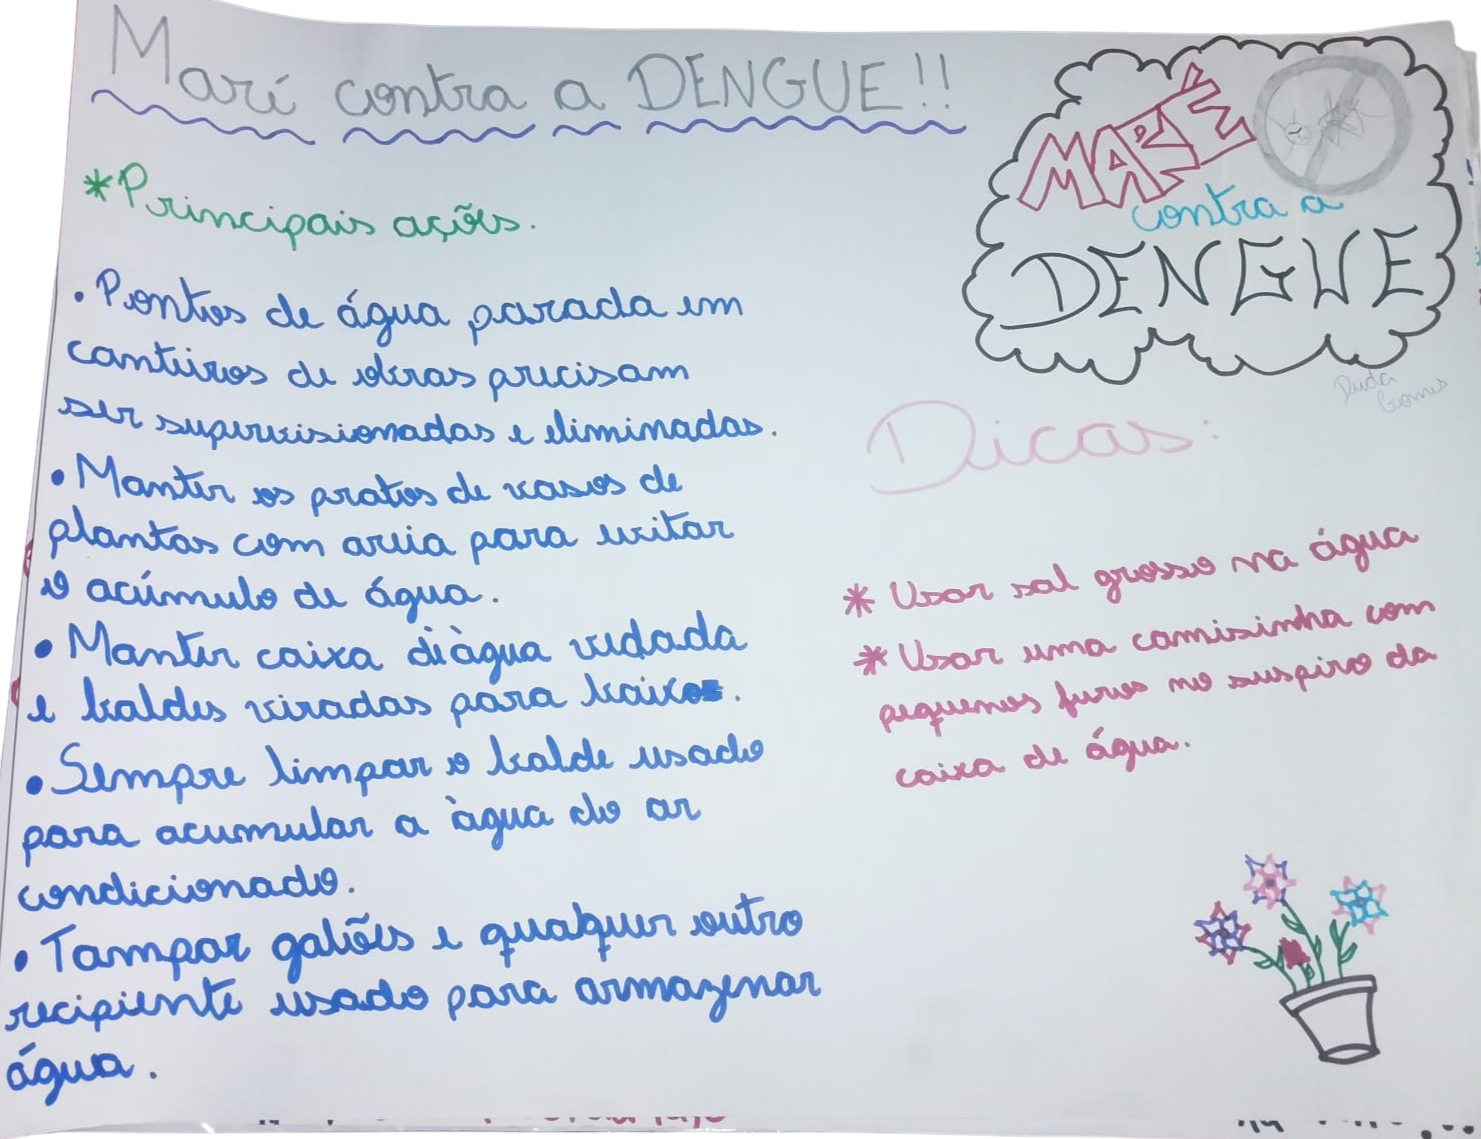 Marí contra a DENGUE!!
*Principais ações.
• Pontos de água parada em
canteiros de obras precisam
ser supervisionadas e eliminadas.
• Manter os pratos de vasos de
plantas com areia para evitar
o acúmulo de água.
• Manter caixa dìàgua vedada
e baldes viradas para baixo.
• Sempre limpar o balde usado
para acumular a àgua do ar
condicionado.
• Tampar galões e qualquer outro
recipiente usado para armazenar
água.
MARÉ
contra a
DENGUE
Duda
Gomes
Dicas:
* Usar sal grosso na água
* Usar uma camisinha com
pequenos furos no suspiro da
caixa de água.